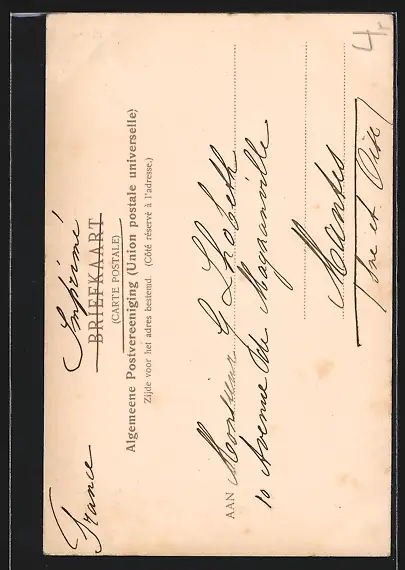 France
Imprimé
BRIEFKAART
(CARTE POSTALE)
Algemeene Postvereeniging (Union postale universelle)
Zijde voor het adres bestemd. (Côté réservé à l'adresse.)
AAN Monsieur G
10 Avenue de Magnanville
Mantes
et Oise
4